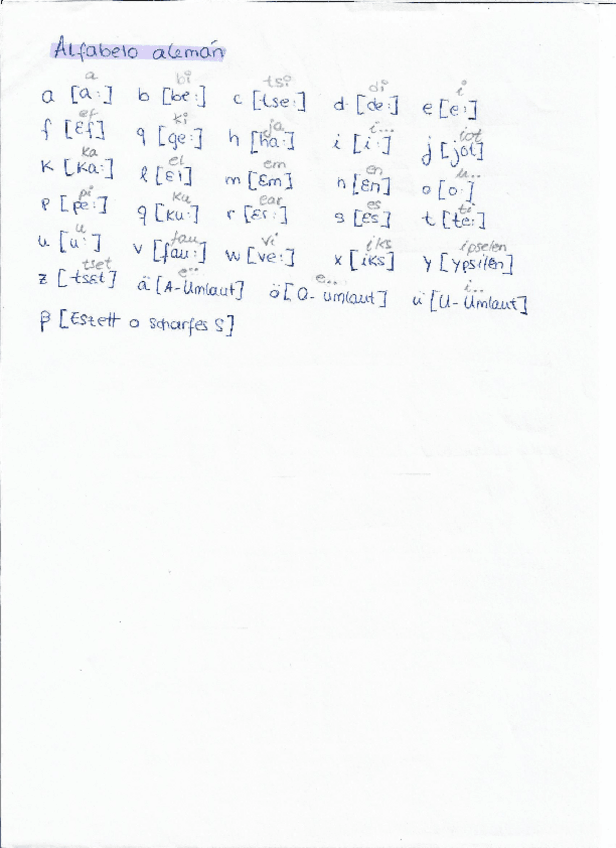 Alfabeto alemán
a bi tsi di i
a [a:] b [be:] c [tse:] d [de:] e [e:]
ef ki ja i... iot
f [Ɛf] g [ge:] h [ha:] i [i:] j [jot]
ka el em en u...
k [ka:] l [Ɛl] m [Ɛm] n [Ɛn] o [o:]
pi ku ear es ti
p [pe:] q [ku:] r [Ɛr:] s [Ɛs] t [te:]
u fau vi iks ipselen
u [u:] v [fau:] w [ve:] x [iks] y [ypsilen]
tset e... e... i...
z [tsƐt] ä [A-Umlaut] ö [O-umlaut] ü [U-Umlaut]
ß [Eszett o scharfes S]